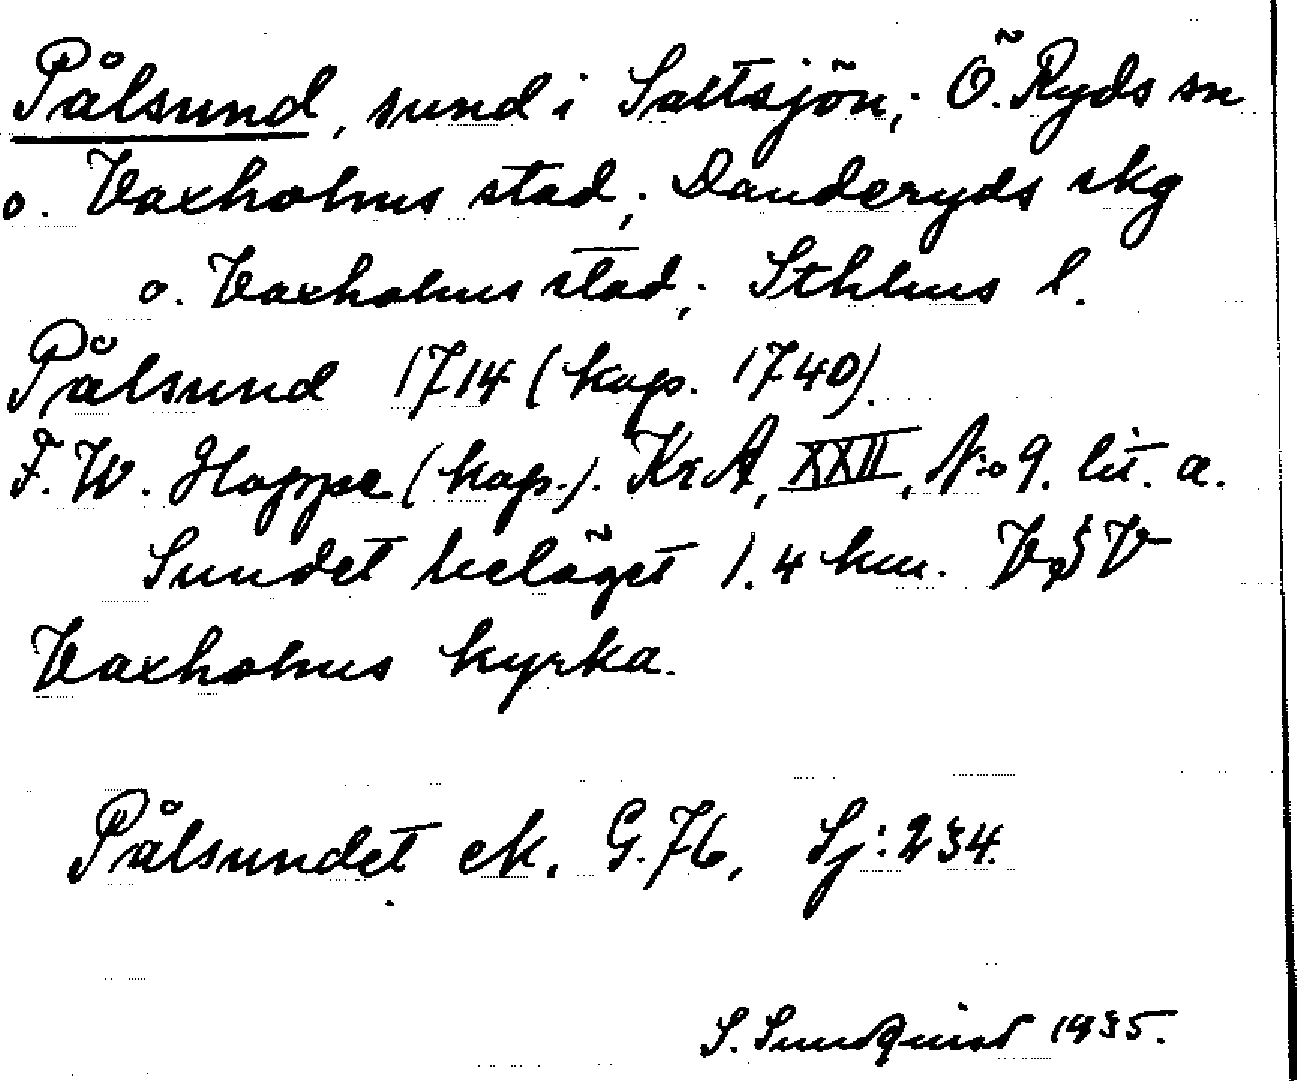 Pålsund, sund i Saltsjön; Ö. Ryds sn
o. Vaxholms stad; Danderyds skg
o. Vaxholms stad; Sthlms l.
Pålsund 1714 (kop. 1740).
F. W. Hoppe (kop.). KrA, XXII, N:o 9. lit. a.
Sundet beläget 1.4 km. V
Vaxholms kyrka.
Pålsundet ek. G.76, Sj:234.
S. Sundquist 1935.